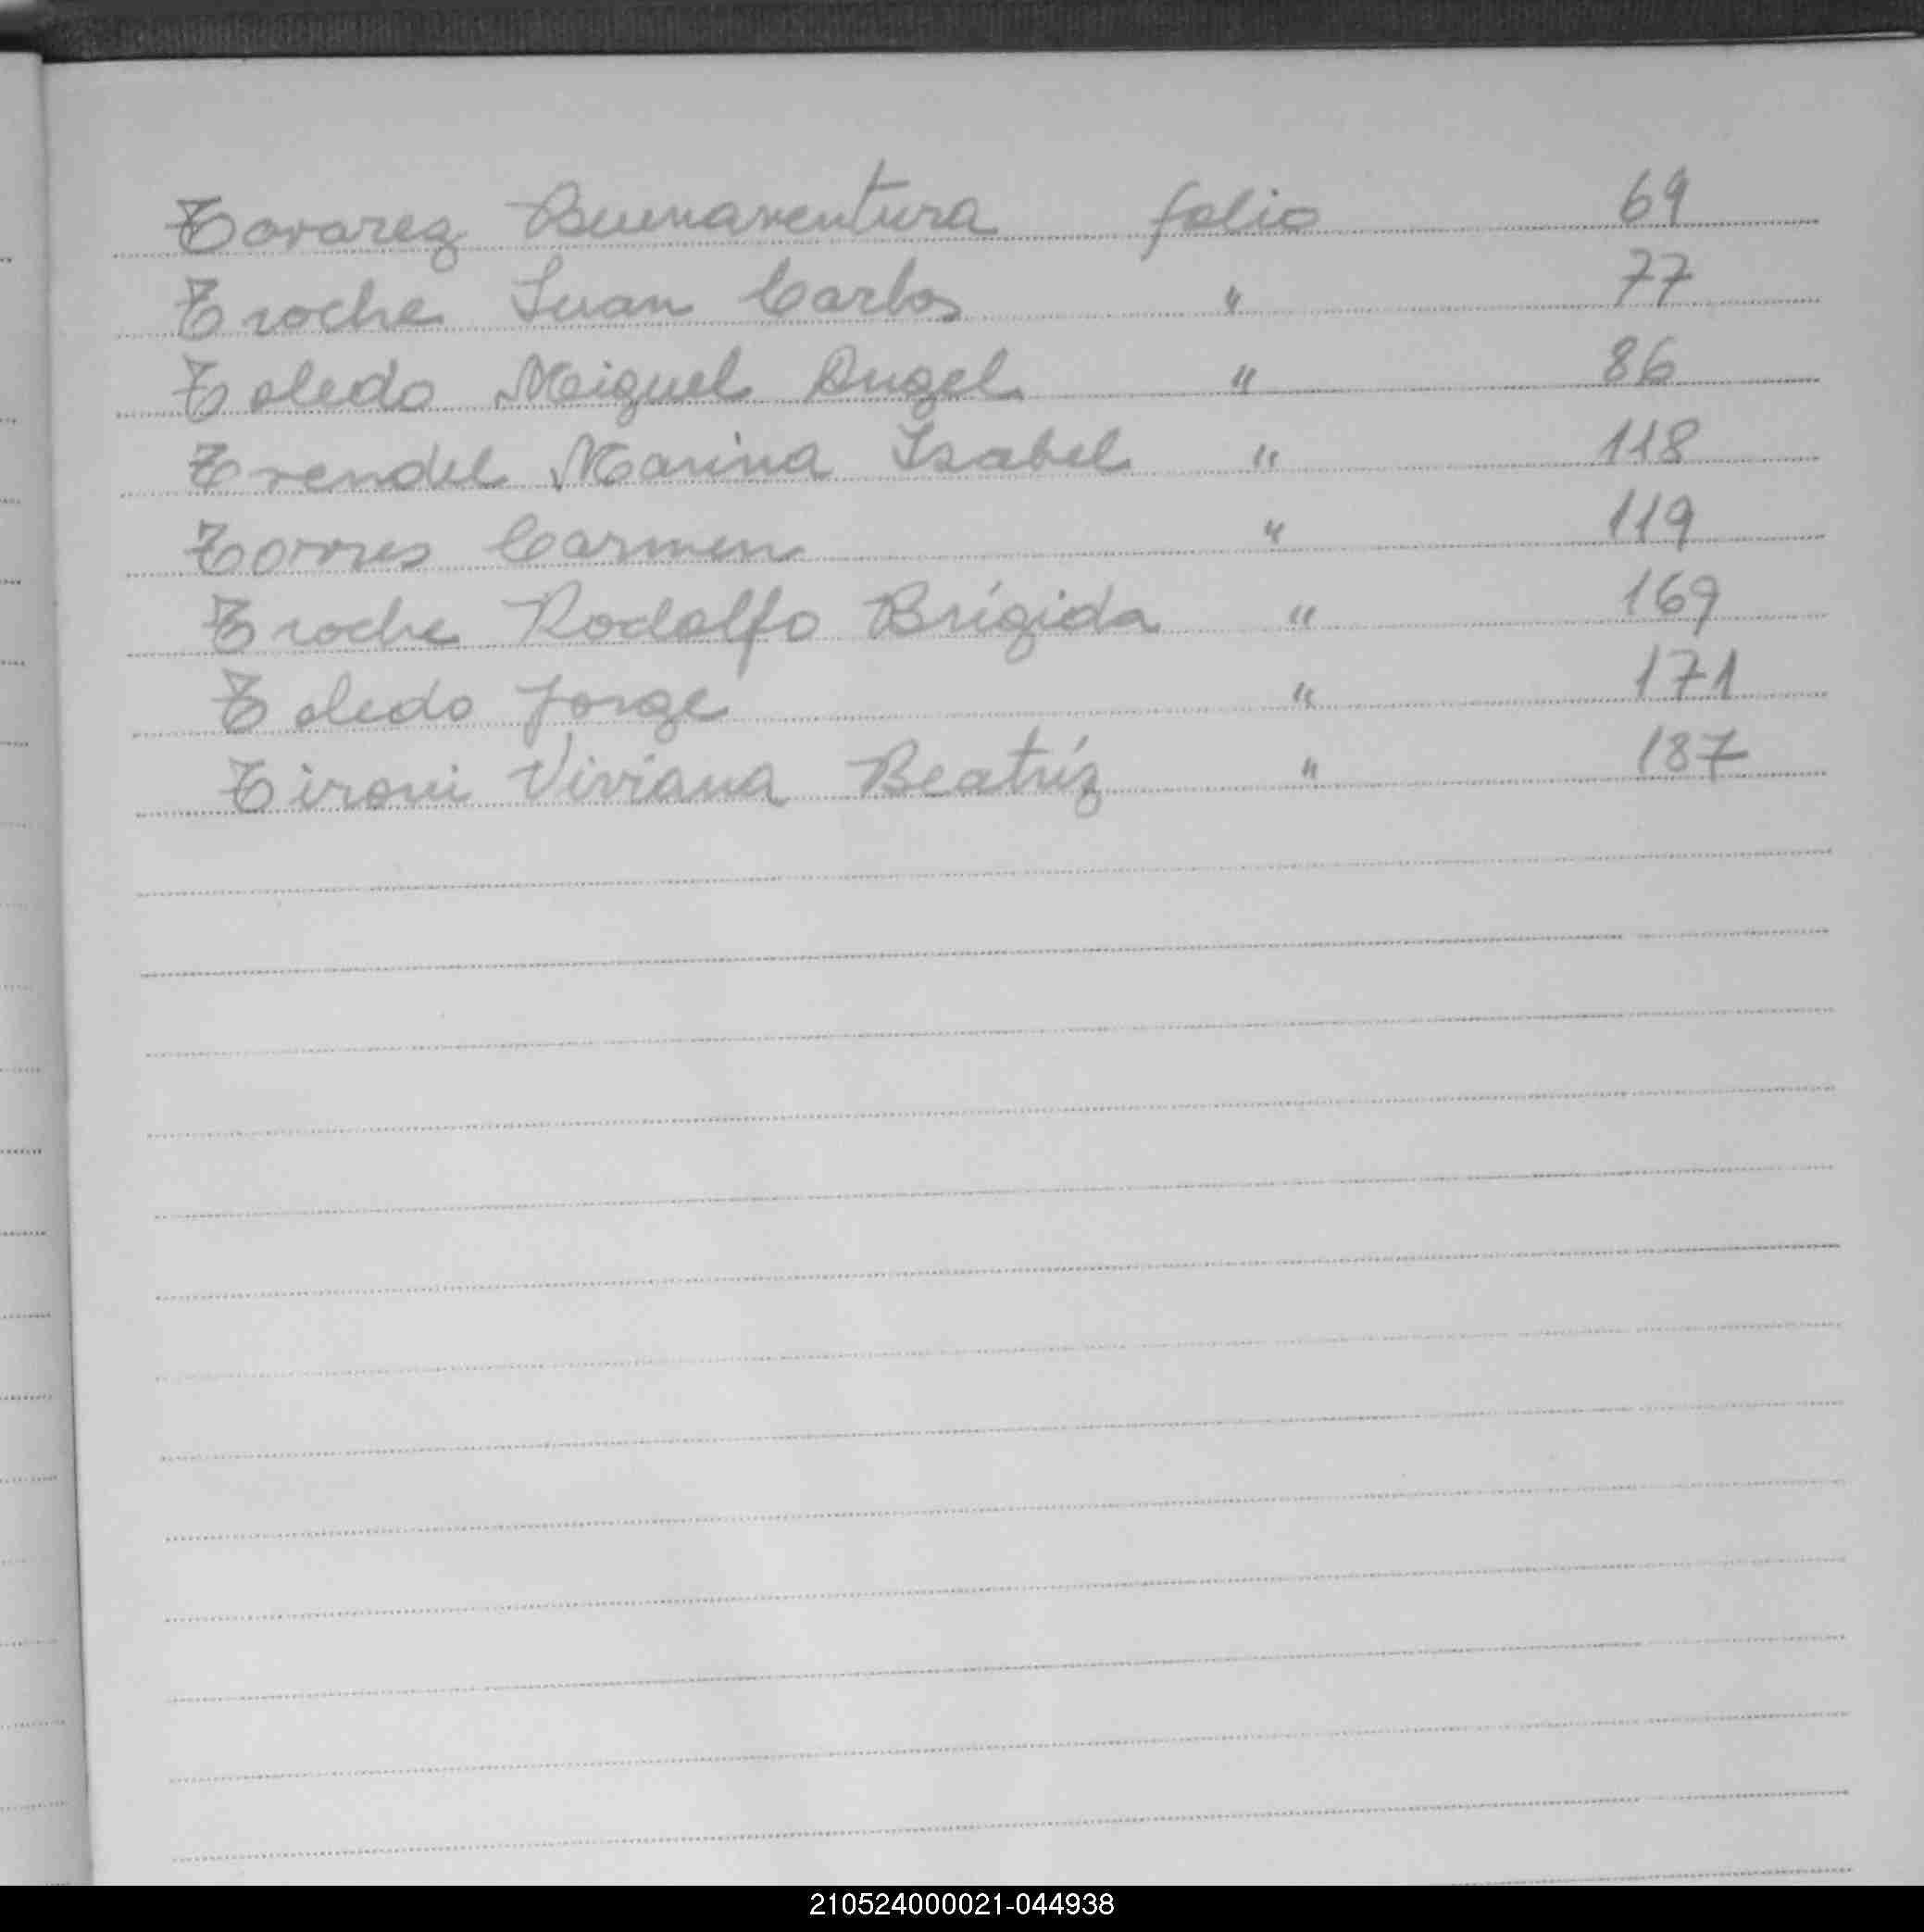 Tovarez Buenaventura folio 69
Troche Juan Carlos " 77
Toledo Miguel Angel " 86
Trendel Marina Isabel " 118
Torres Carmen " 119
Troche Rodolfo Brígida " 169
Toledo Jorge " 171
Tironi Viviana Beatríz " 187
210524000021-044938